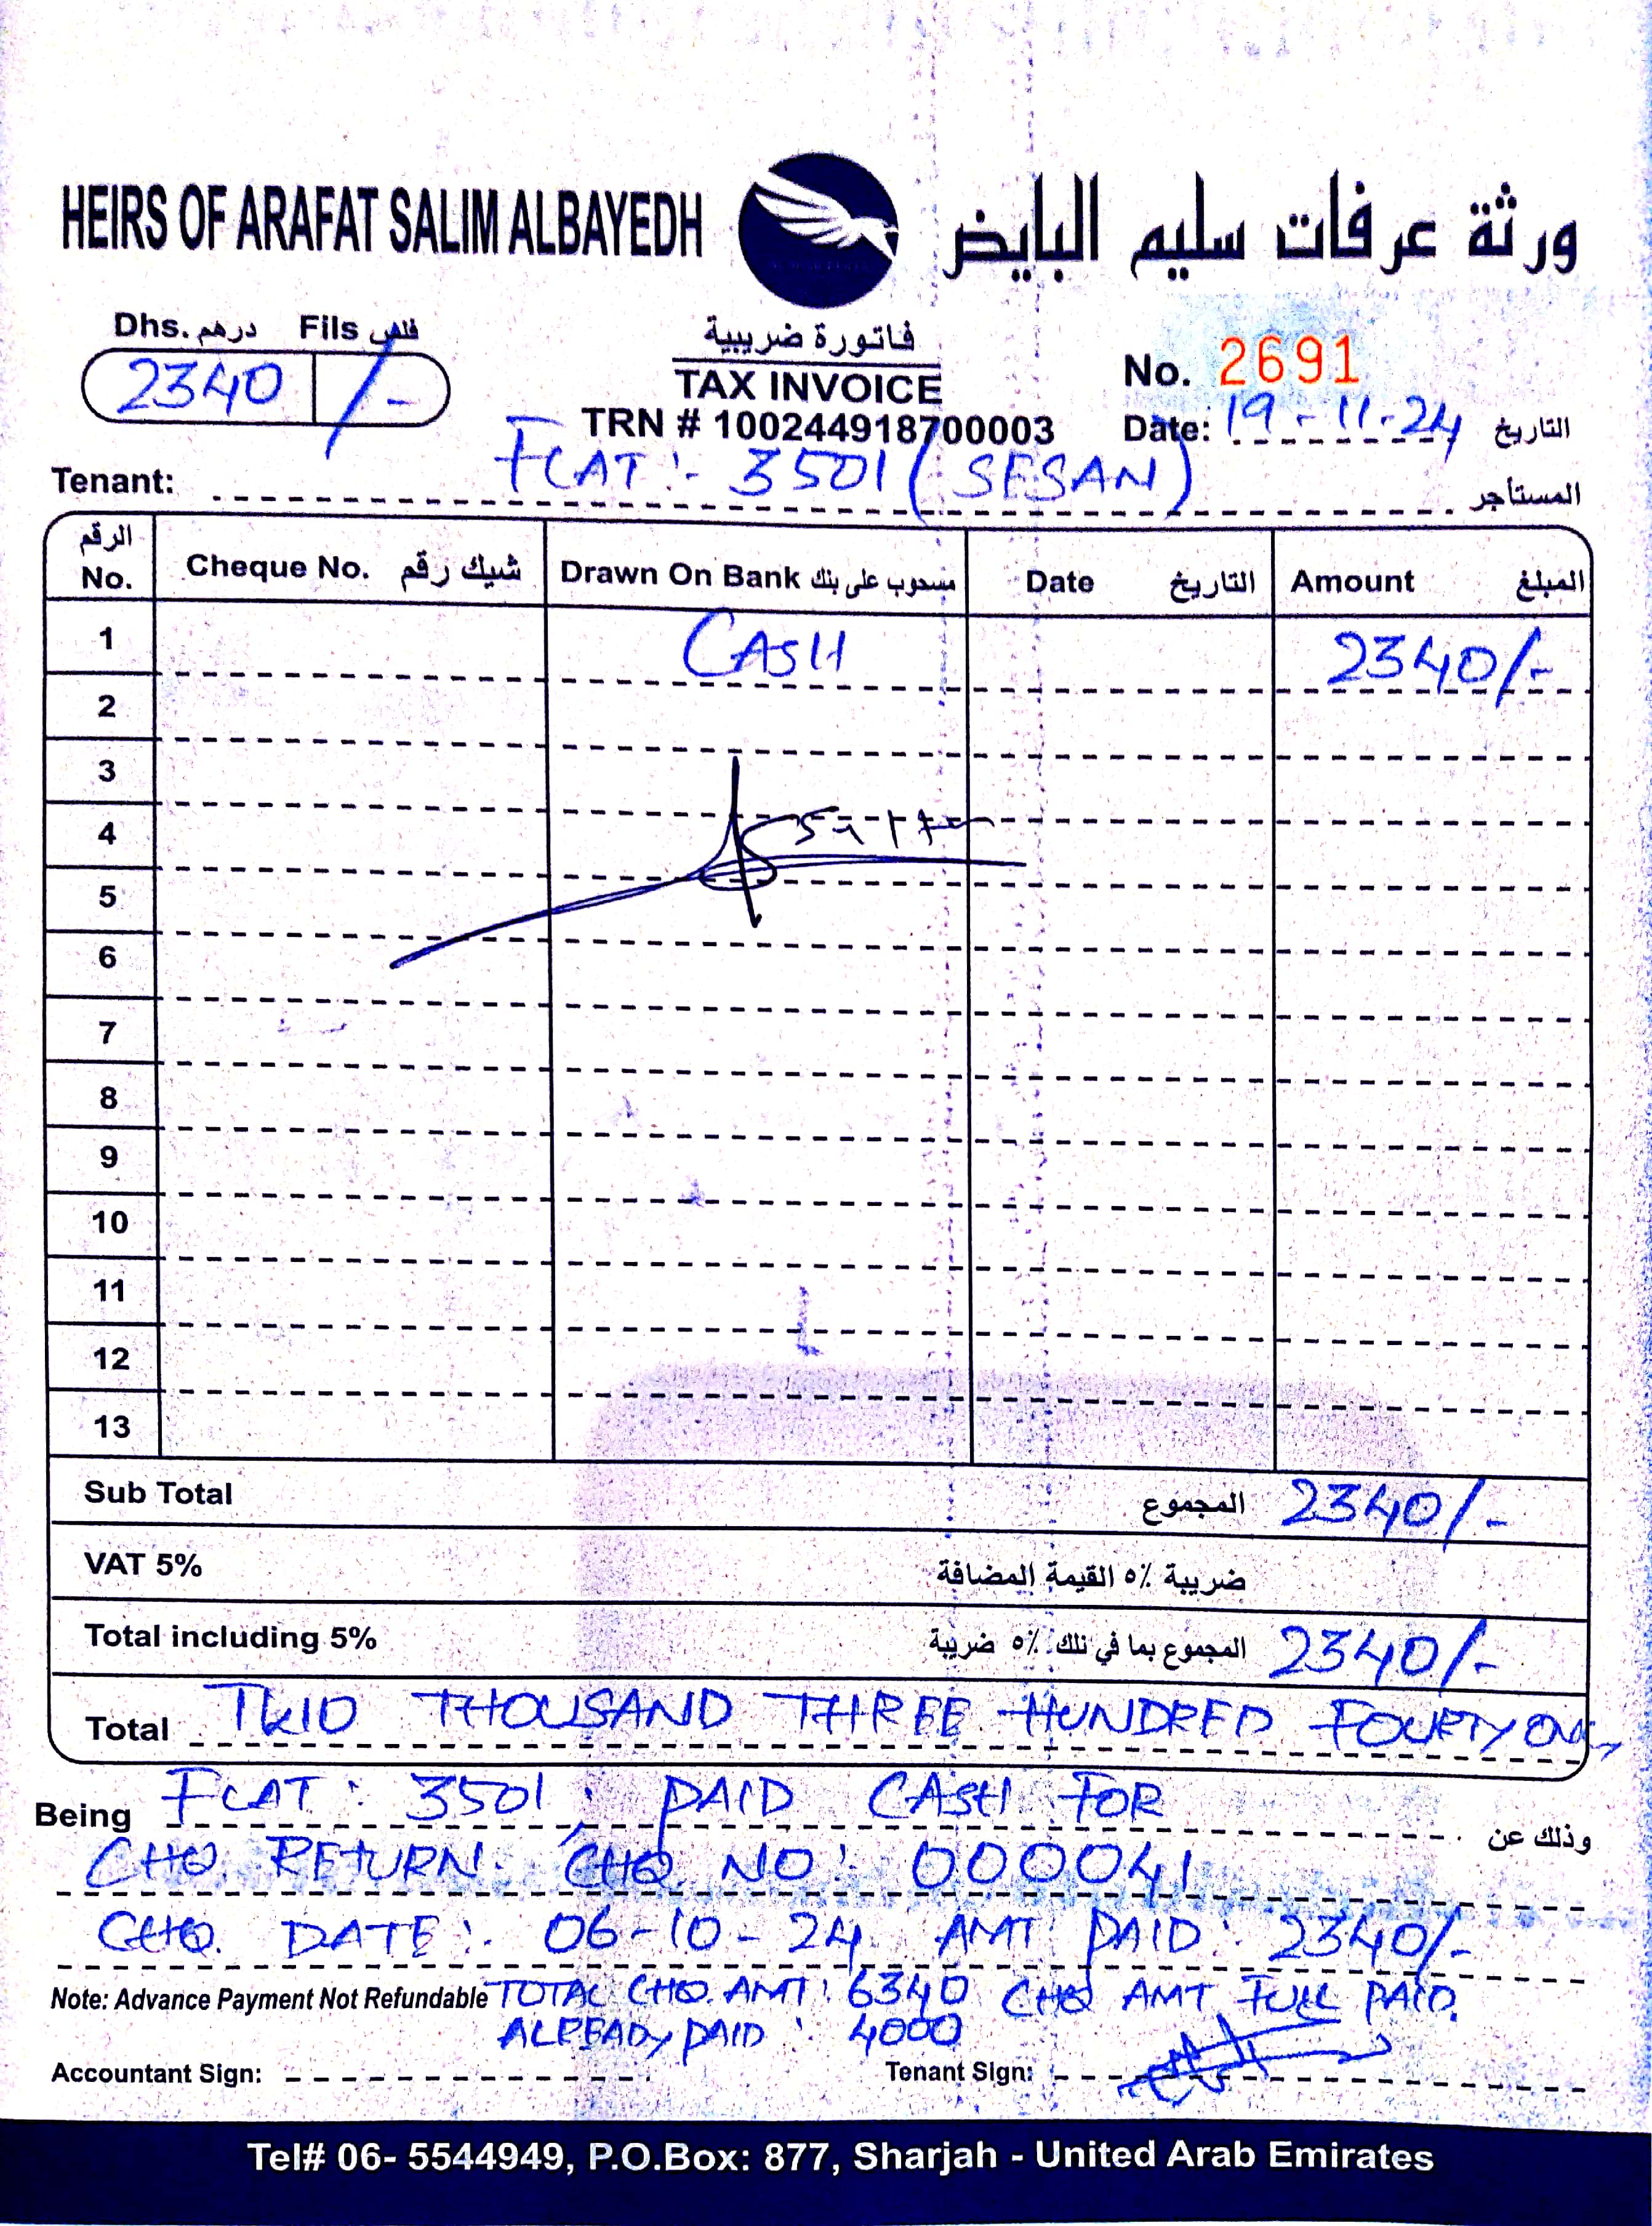 HEIRS OF ARAFAT SALIM ALBAYEDH ورثة عرفات سليم البايض
Dhs. درهم Fils فلس
2340 /-
فاتورة ضريبية
TAX INVOICE
TRN # 100244918700003
No. 2691
Date: 19-11-24 التاريخ
Tenant: FLAT :- 3501 (SESAN) المستأجر
الرقم No. Cheque No. شيك رقم Drawn On Bank مسحوب على بنك Date التاريخ Amount المبلغ
1 CASH 2340/-
2
3
4
5
6
7
8
9
10
11
12
13
Sub Total المجموع 2340/-
VAT 5% ضريبة ٥٪ القيمة المضافة
Total including 5% المجموع بما في ذلك ٥٪ ضريبة 2340/-
Total TWO THOUSAND THREE HUNDRED FOURTY
Being FLAT : 3501, PAID CASH FOR وذلك عن
CHQ. RETURN. CHQ NO: 000041
CHQ. DATE: 06-10-24 AMT PAID: 2340/-
Note: Advance Payment Not Refundable TOTAL CHQ. AMT: 6340 CHQ AMT FULL PAID.
ALREADY PAID : 4000
Accountant Sign: Tenant Sign:
Tel# 06- 5544949, P.O.Box: 877, Sharjah - United Arab Emirates